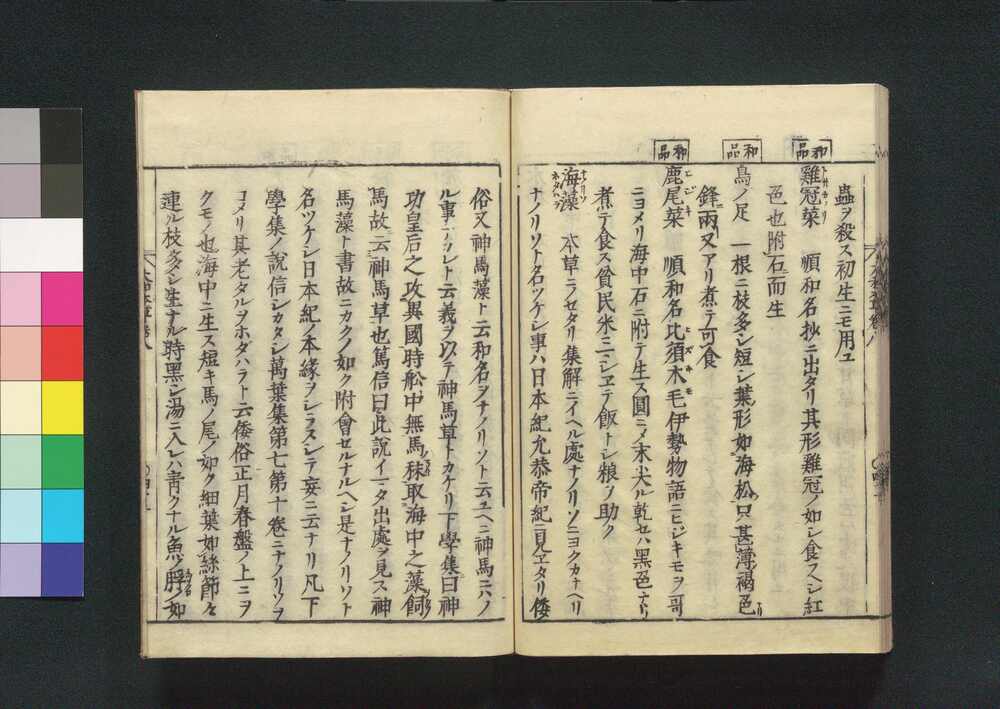 蟲ヲ殺ス初生ニモ用ユ
和品
雞冠菜 順和名抄ニ出タリ其形雞冠ノ如シ食スヘシ紅
色也附石而生
和品
鳥ノ足 一根ニ枝多シ短シ葉形如海松只甚薄褐色ナリ
鋒兩叉アリ煮テ可食
和品
鹿尾菜 順和名比須木毛伊勢物語ニヒジキモヲ哥
ヒジキ ヒズキモ
ニヨメリ海中石ニ附テ生ス圓ニノ末尖ル乾セハ黒色ナリ
煮テ食ス貧民米ニシヱテ飯トシ粮ノ助ク
海藻 本草ニノセタリ集解ニイヘル處ナノリソニヨクカナヘリ
ナノリソ
ナノリソト名ツケシ事ハ日本紀允恭帝紀ニ見ヱタリ倭
俗又神馬藻ト云和名ヲナノリソト云ユヘニ神馬ニハノ
ル事ナカレト云義ヲ以テ神馬草トカケリ下學集曰神
功皇后之攻異國時舩中無馬秣取海中之藻飼
馬故云神馬草也篤信曰此説イマタ出處ヲ見ス神
馬藻ト書故ニカクノ如ク附會セルナルヘシ是ナノリソト
名ツケシ日本紀ノ本縁ヲシラスシテ妄ニ云ナリ凡下
學集ノ説信シカタシ萬葉集第七第十卷ニナノリソヲ
ヨメリ其老タルヲホダハラト云倭俗正月春盤ノ上ニヲ
クモノ也海中ニ生ス短キ馬ノ尾ノ如ク細葉如絲節々
連ル枝多シ生ナル時黒シ湯ニ入レハ青クナル魚ノ脬ノ如